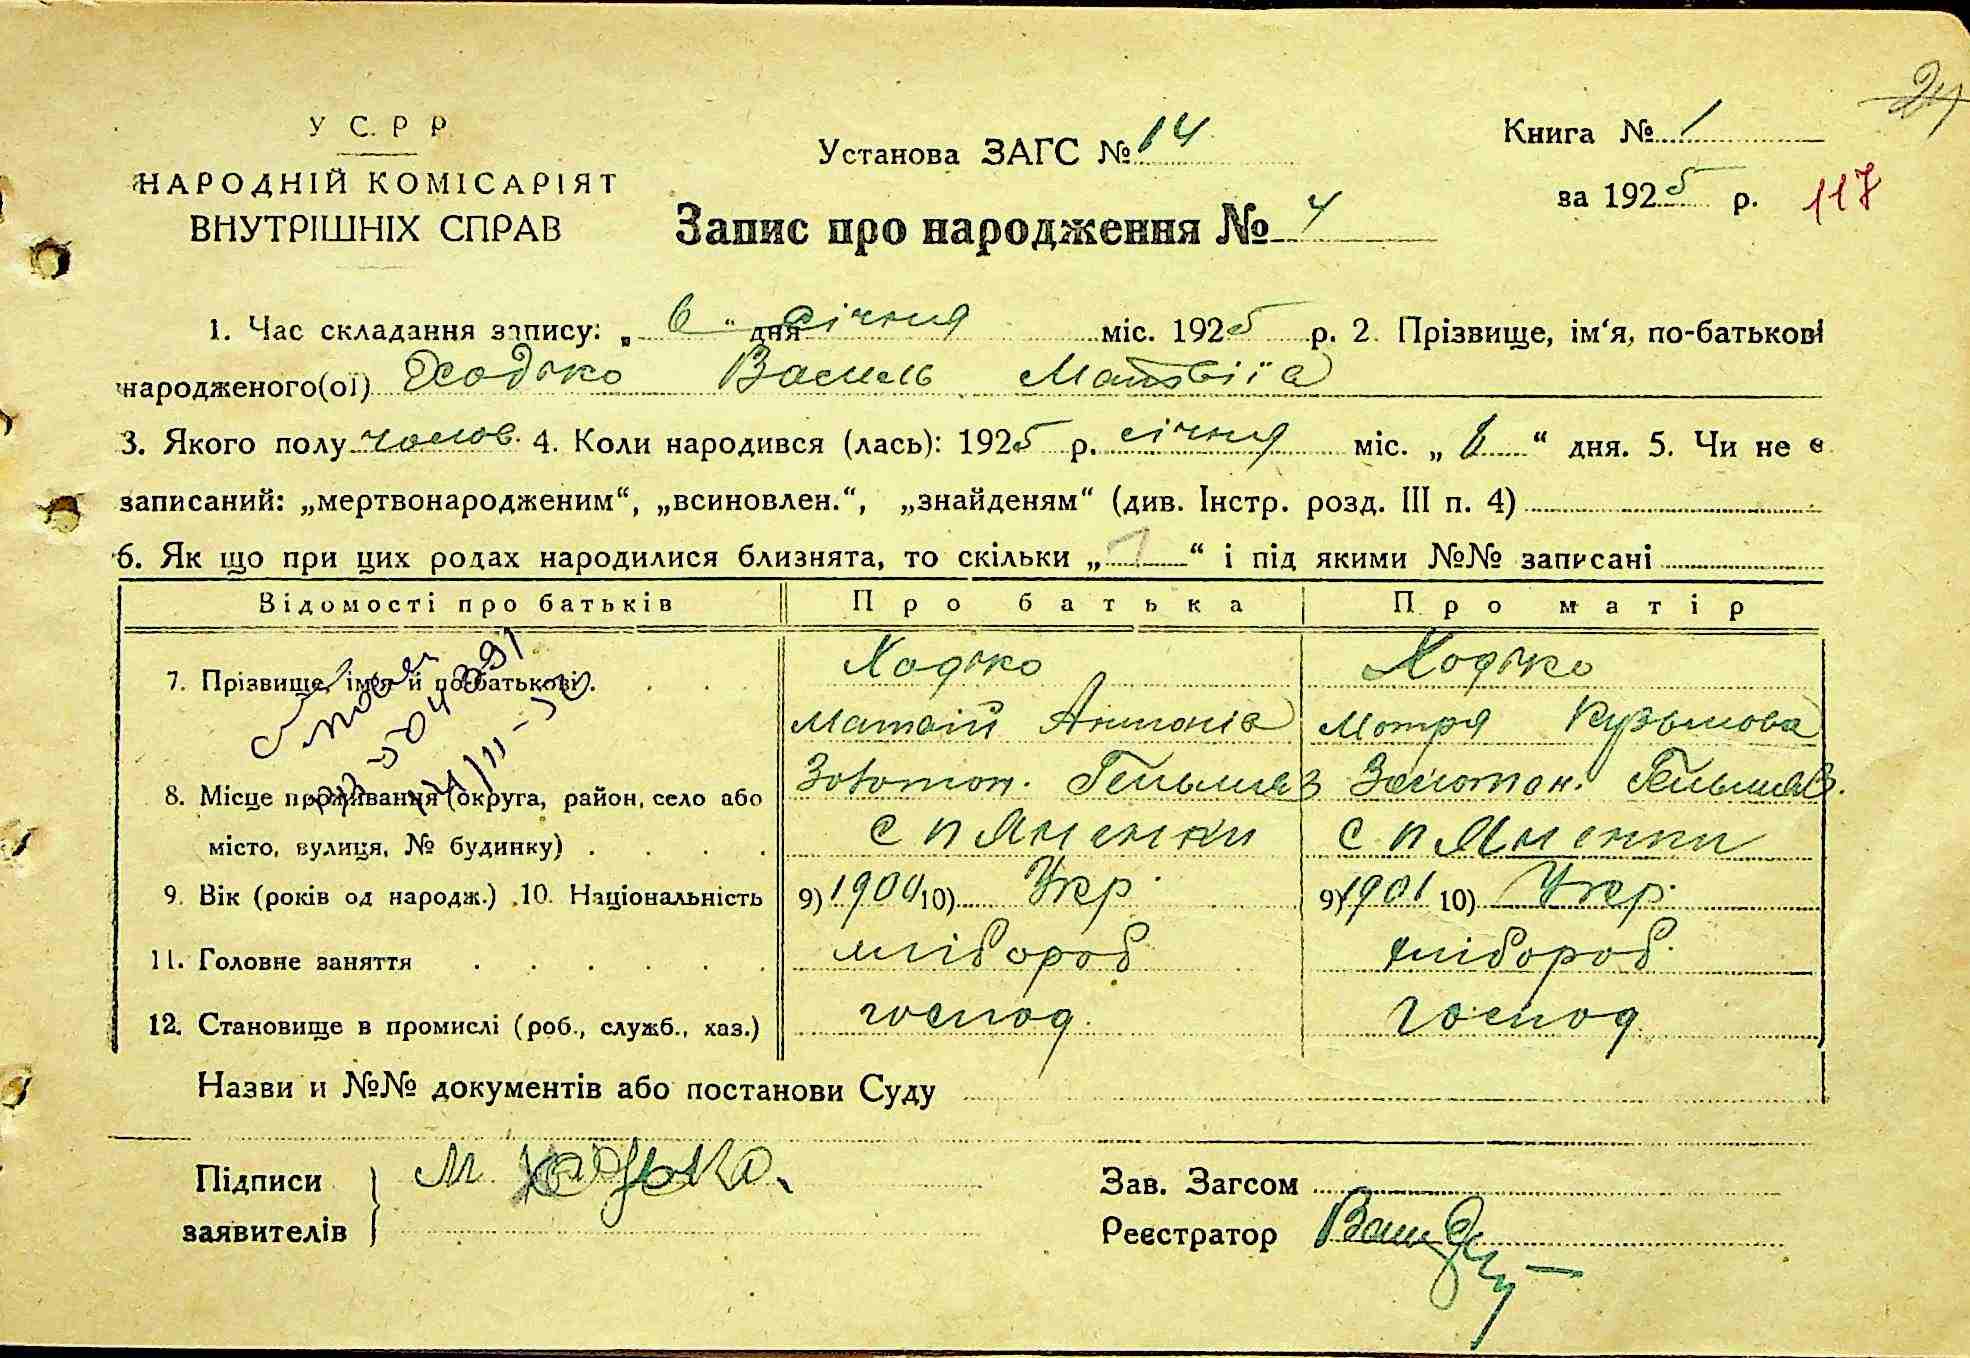 24
У С. Р Р
НАРОДНІЙ КОМІСАРІЯТ
ВНУТРІШНІХ СПРАВ
Установа ЗАГС № 14
Запис про народження № 4
Книга № 1
за 1925 р. 117
1. Час складання запису: „ 6 “ дня січня міс. 1925 р. 2. Прізвище, ім‘я, по-батькові
народженого(ої) Ходько Василь Матвіїв
3. Якого полу чолов. 4. Коли народився (лась): 1925 р. січня міс. „ 6 “ дня. 5. Чи не є
записаний: „мертвонародженим“, „всиновлен.“, „знайденям“ (див. Інстр. розд. III п. 4)
6. Як що при цих родах народилися близнята, то скільки „ 1 “ і під якими №№ записані
Відомості про батьків Про батька Про матір
7. Прізвище, імя й по-батькові . Ходько Ходько
Матвій Антонів Мотря Кузьмова
8. Місце проживання (округа, район, село або Золотон. Гельмяз Золотон. Гельмяз.
місто, вулиця, № будинку) с Пляненки с Пляненки
9. Вік (років од народж.) .10. Національність 9) 1900 10) Укр. 9) 1901 10) Укр.
11. Головне заняття хлібороб хлібороб.
12. Становище в промислі (роб., служб., хаз.) господ. господ
Назви и №№ документів або постанови Суду
Підписи М. Ходько. Зав. Загсом
заявителів Реєстратор